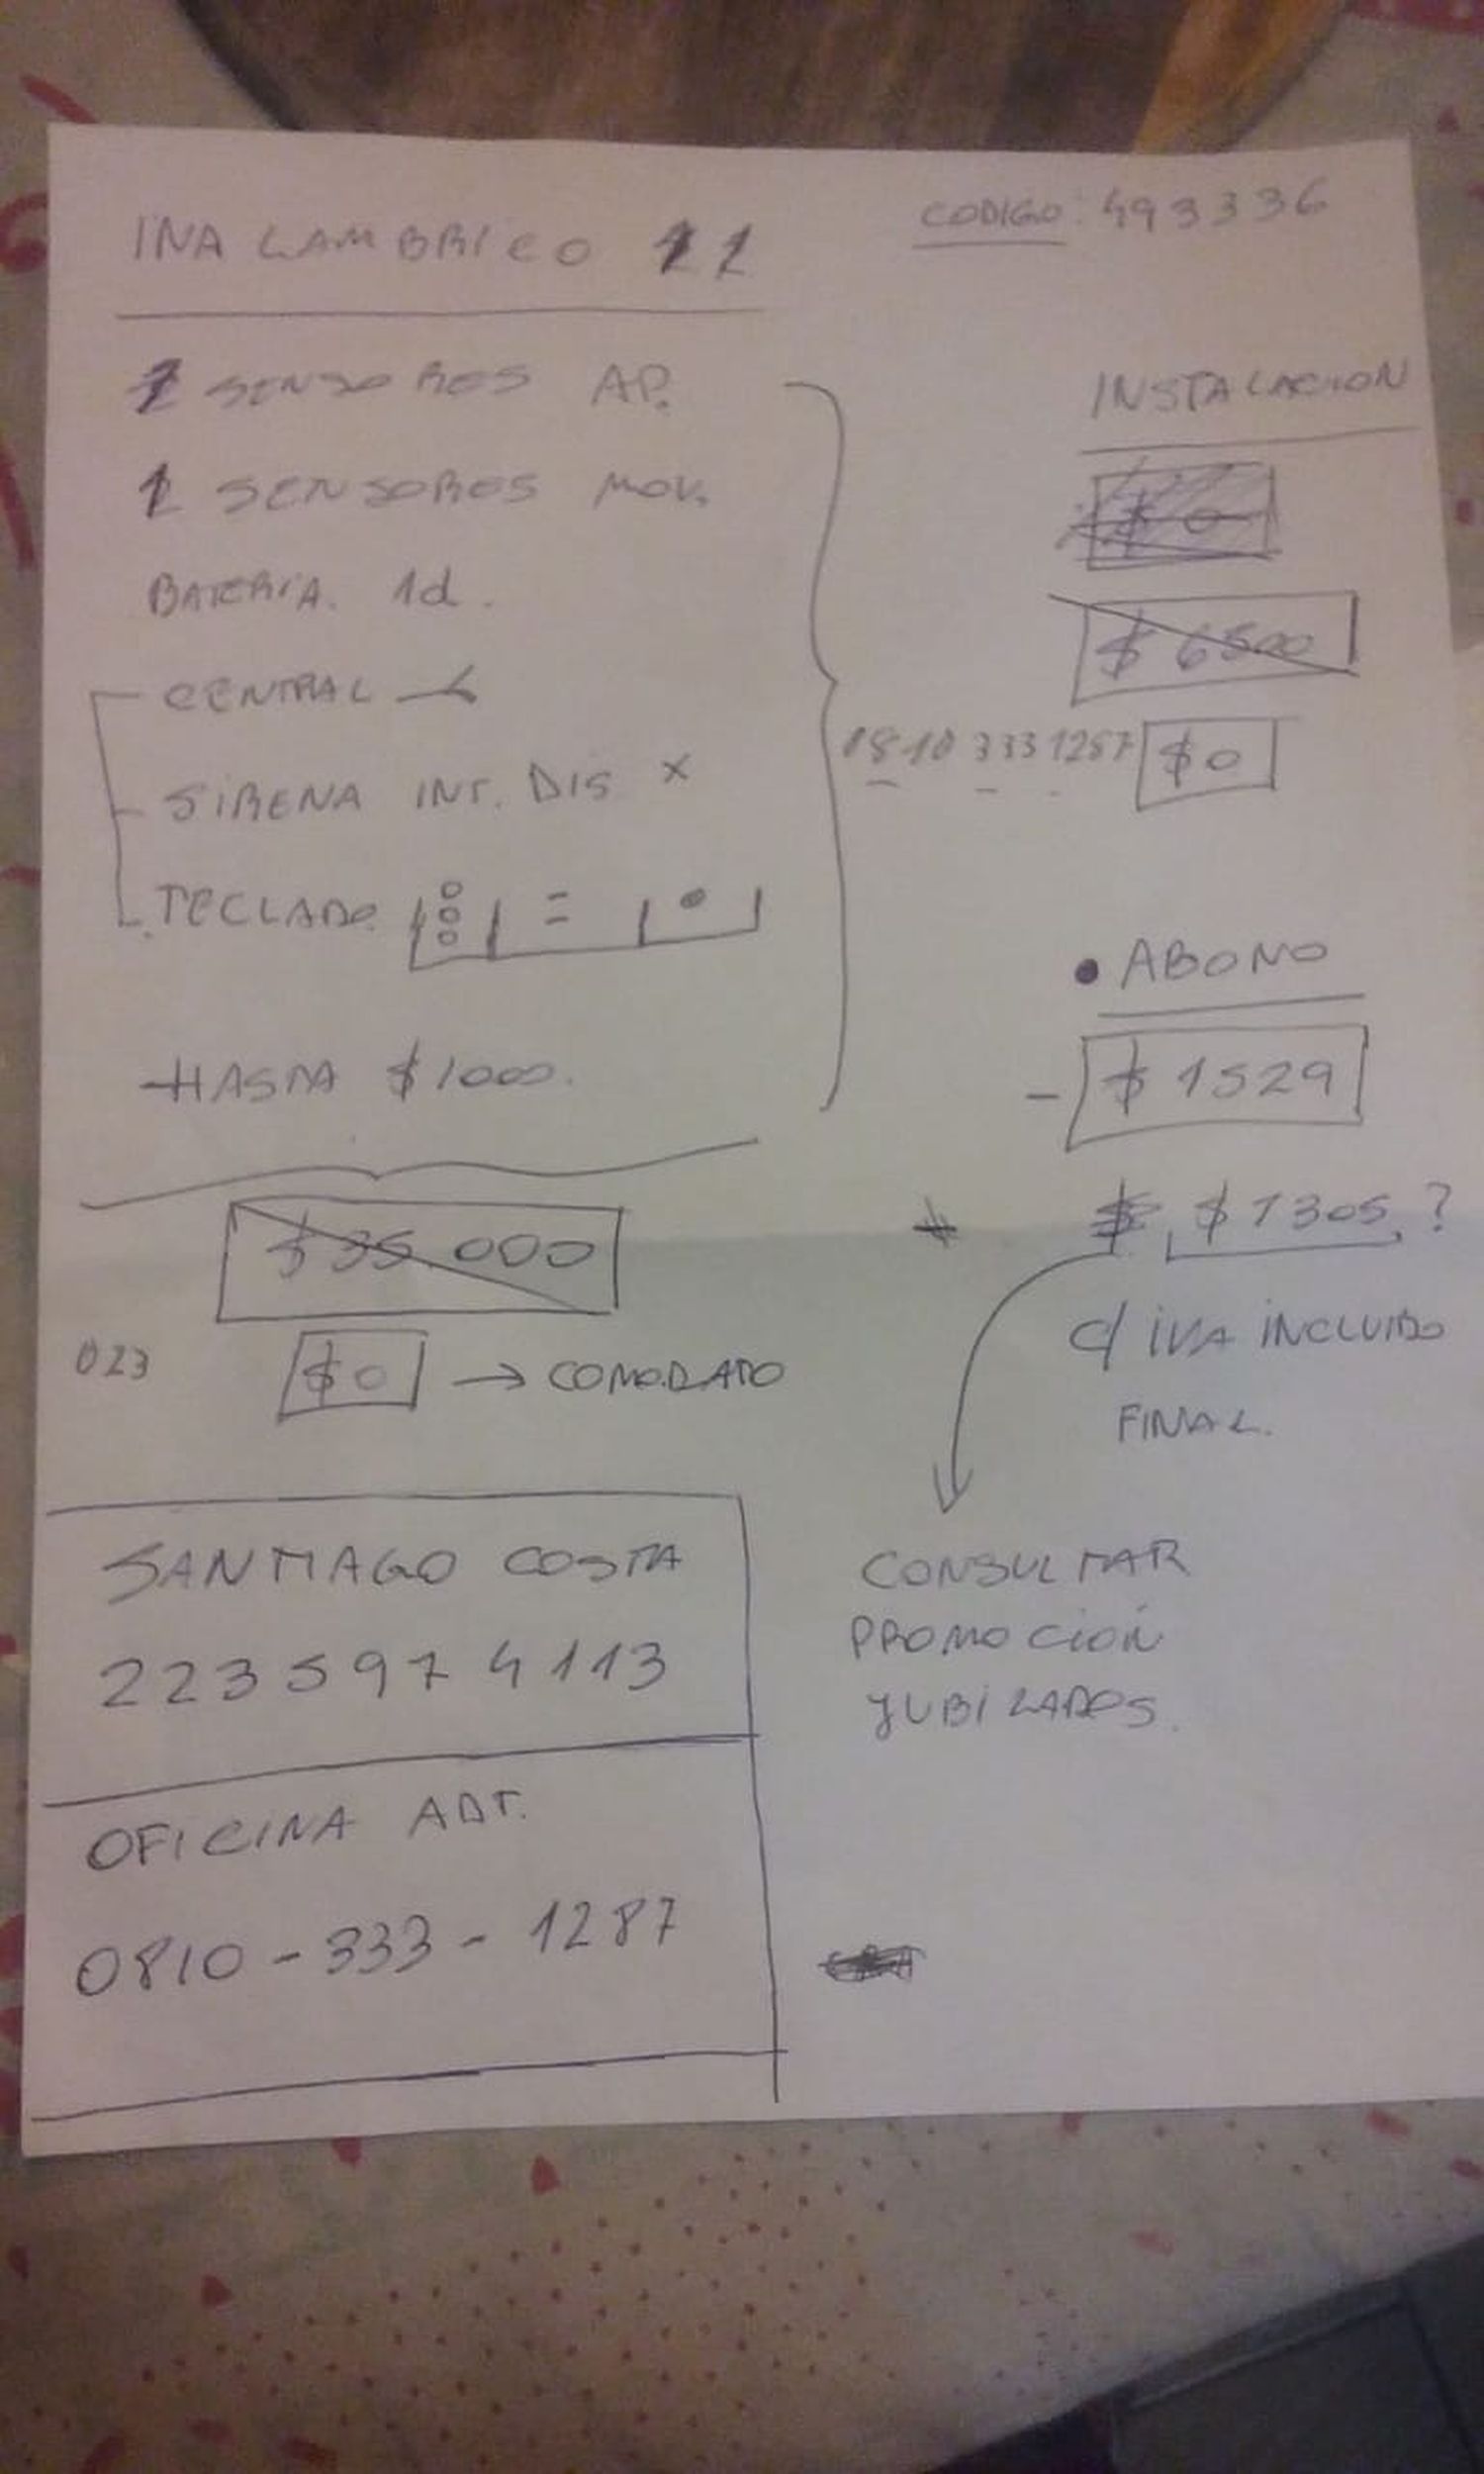 INALAMBRICO 11
CODIGO: 493336
2 SENSORES AP.
1 SENSORES MOV.
BATERIA. 1d.
CENTRAL
SIRENA INT. DIS x
TECLADO =
HASTA $1000.
$35.000
023
$0 → COMODATO
INSTALACION
$0
$6500
0810 333 1287 $0
• ABONO
- $1529
$ $1305, ?
C/ IVA INCLUIDO
FINAL.
CONSULTAR
PROMOCION
JUBILADOS.
SANTIAGO COSTA
223 597 4113
OFICINA ADT.
0810-333-1287